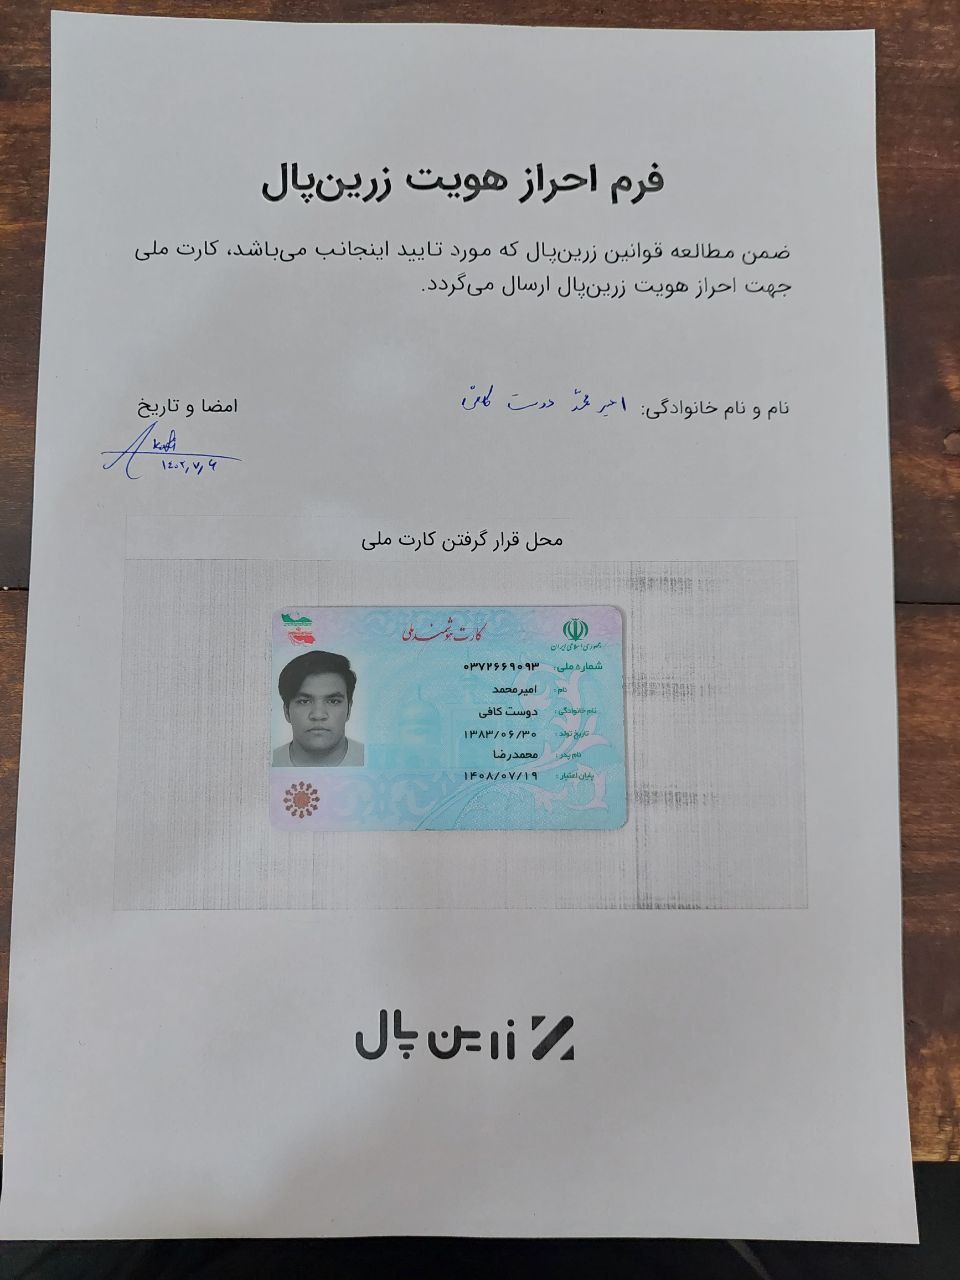 فرم احراز هویت زرین‌پال
ضمن مطالعه قوانین زرین‌پال که مورد تایید اینجانب می‌باشد، کارت ملی
جهت احراز هویت زرین‌پال ارسال می‌گردد.
نام و نام خانوادگی: امیر محمد دوست کافی
امضا و تاریخ
Akafi
۱۴۰۲,۷,۶
محل قرار گرفتن کارت ملی
کارت هوشمند ملی
جمهوری اسلامی ایران
شماره ملی: ۰۳۷۲۶۶۹۰۹۳
نام: امیرمحمد
نام خانوادگی: دوست کافی
تاریخ تولد: ۱۳۸۳/۰۶/۳۰
نام پدر: محمدرضا
پایان اعتبار: ۱۴۰۸/۰۷/۱۹
زرین پال